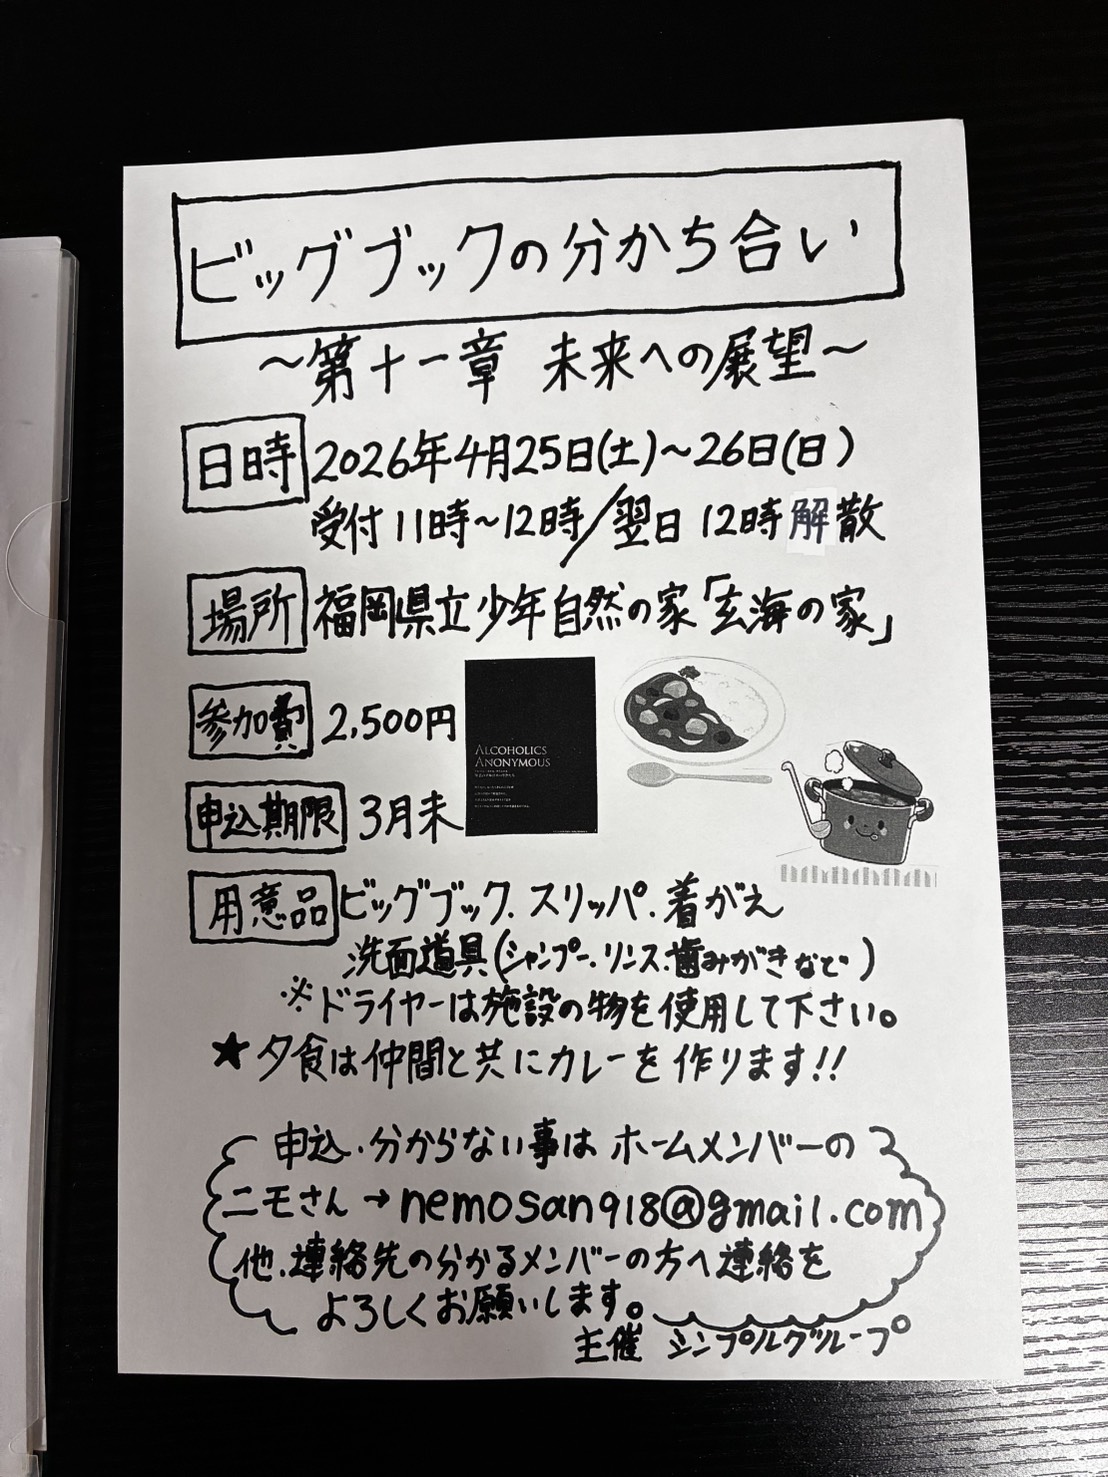 ビッグブックの分かち合い
〜第十一章 未来への展望〜
日時 2026年4月25日(土)〜26日(日)
受付11時〜12時/翌日12時解散
場所 福岡県立少年自然の家「玄海の家」
参加費 2,500円
ALCOHOLICS
ANONYMOUS
申込期限 3月末
用意品 ビッグブック.スリッパ.着がえ
洗面道具(シャンプー.リンス.歯みがきなど)
※ドライヤーは施設の物を使用して下さい。
★夕食は仲間と共にカレーを作ります!!
申込.分からない事は ホームメンバーの
ニモさん→nemosan918@gmail.com
他.連絡先の分かるメンバーの方へ連絡を
よろしくお願いします。
主催 シンプルグループ